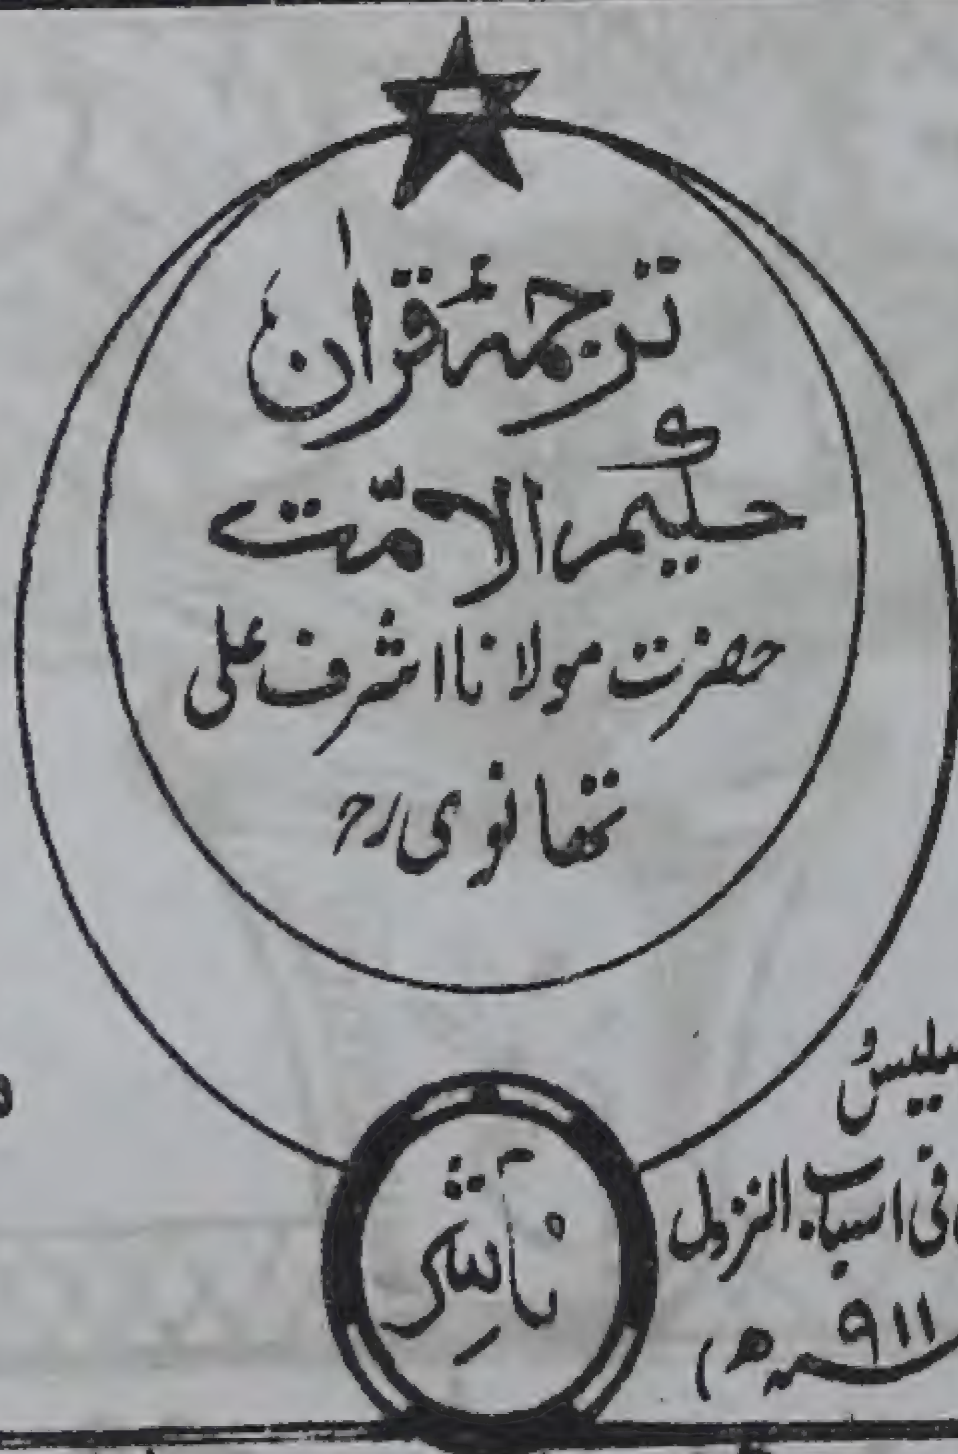 ترجمۂ قرآن
حکیم الامّت
حضرت مولانا اشرف علی
تھانوی رح
فی اسباب النزول
۹۱۱ ھ)
ناشر